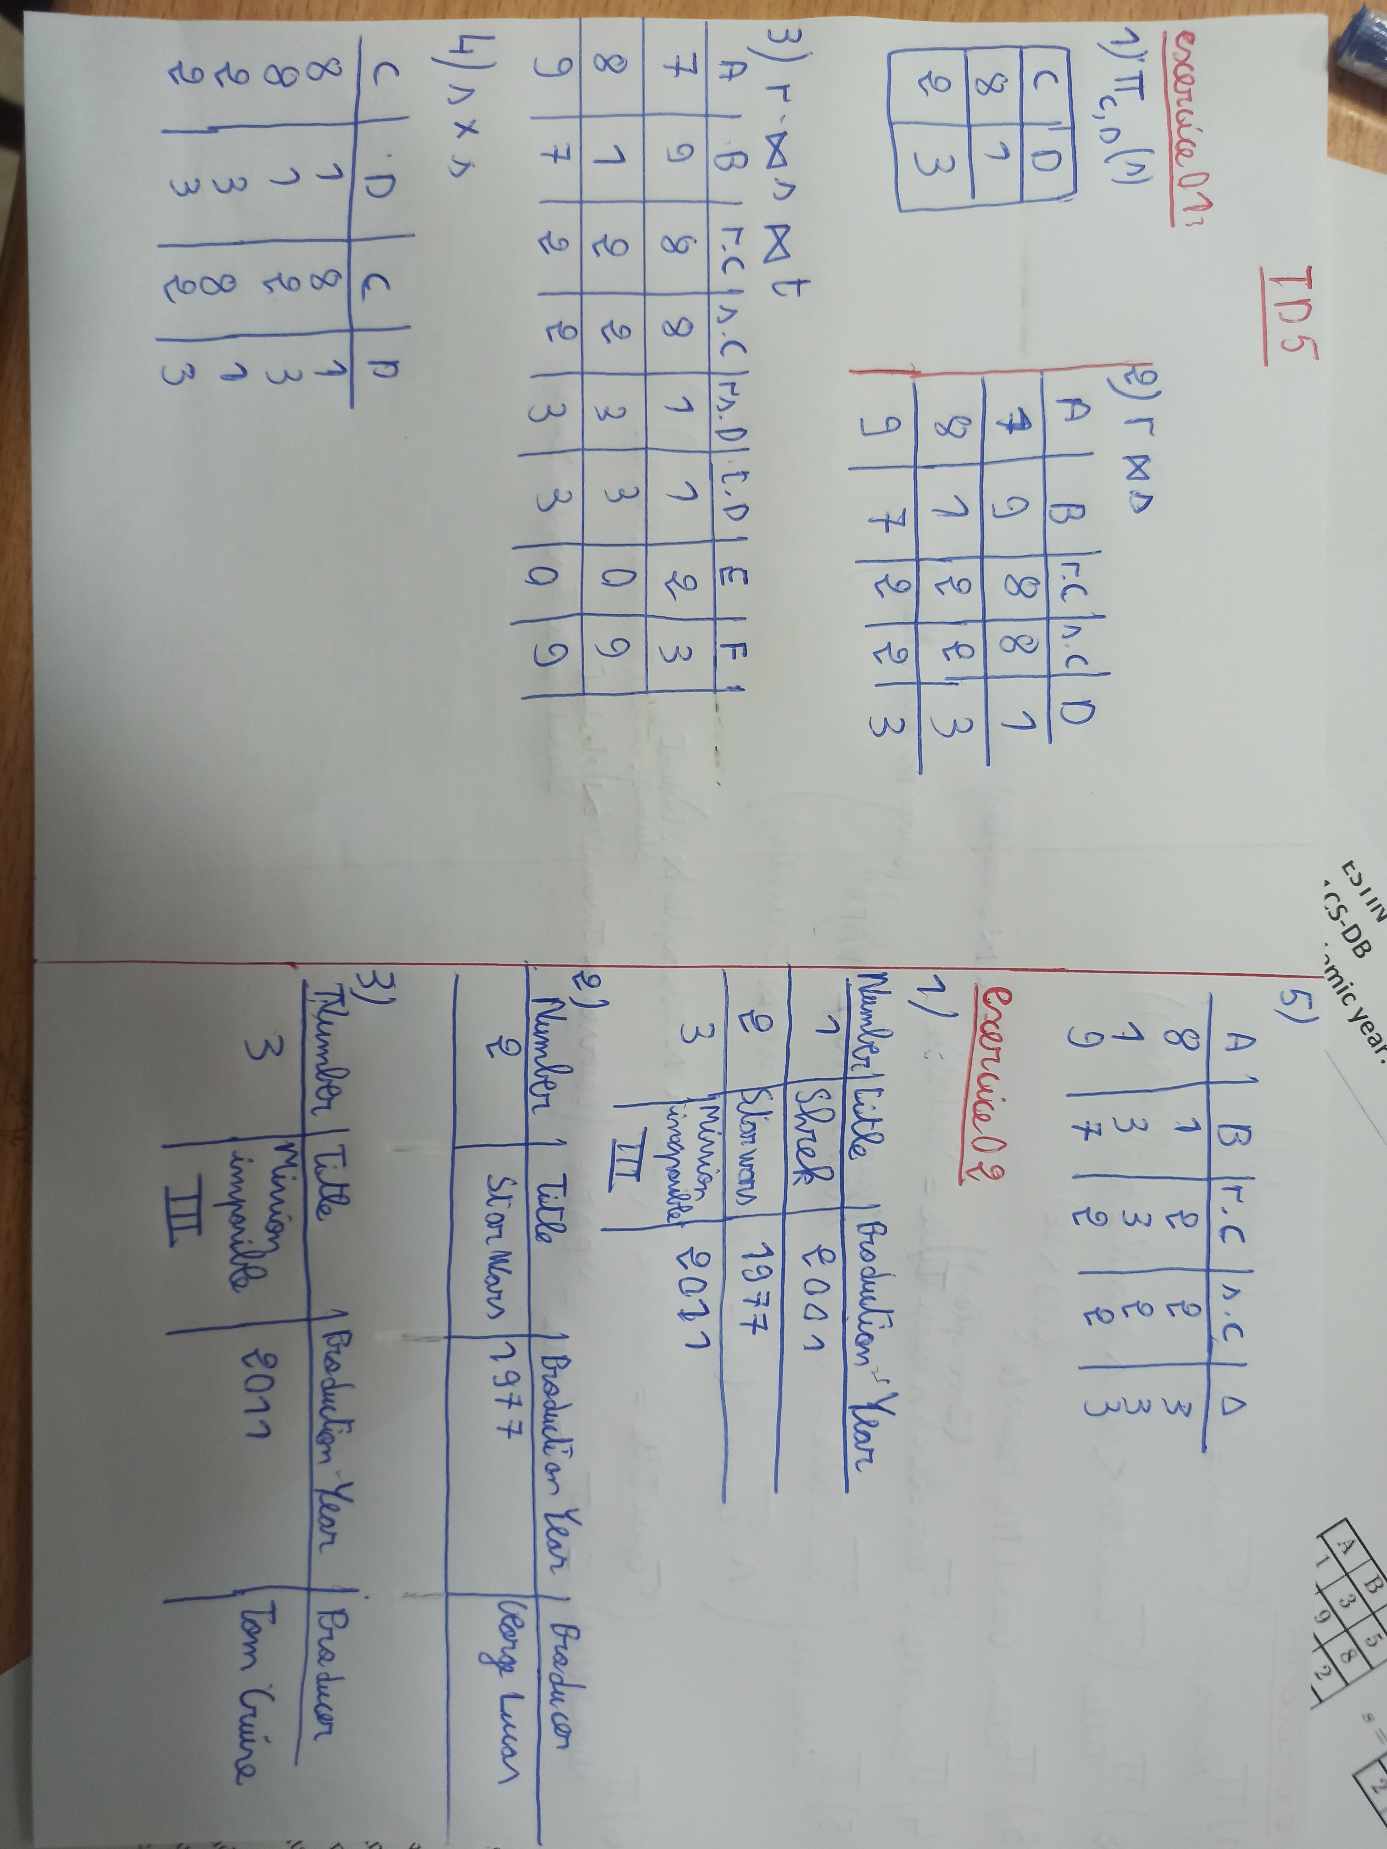 ESTIN
ACS-DB
A B
1 3 5
9 8
2
s =
2
TD5
exercice 01:
1) π C,D (s)
C D
8 1
2 3
2) r ⋈ s
A B r.C s.C D
7 9 8 8 1
8 1 2 2 3
9 7 2 2 3
3) r ⋈ s ⋈ t
A B r.C s.C rs.D t.D E F
7 9 8 8 1 1 2 3
8 1 2 2 3 3 0 9
9 7 2 2 3 3 0 9
4) s × s
C D C D
8 1 8 1
8 1 2 3
2 3 8 1
2 3 2 3
5)
A B r.C s.C D
8 1 2 2 3
1 3 3 2 3
9 7 2 2 3
exercice 02
1)
Number title Production Year
1 Shrek 2001
2 Star wars 1977
3 Mission impossible III 2011
2)
Number Title Production Year Producer
2 Star Wars 1977 George Lucas
3)
Number Title Production Year Producer
3 Mission impossible III 2011 Tom Cruise